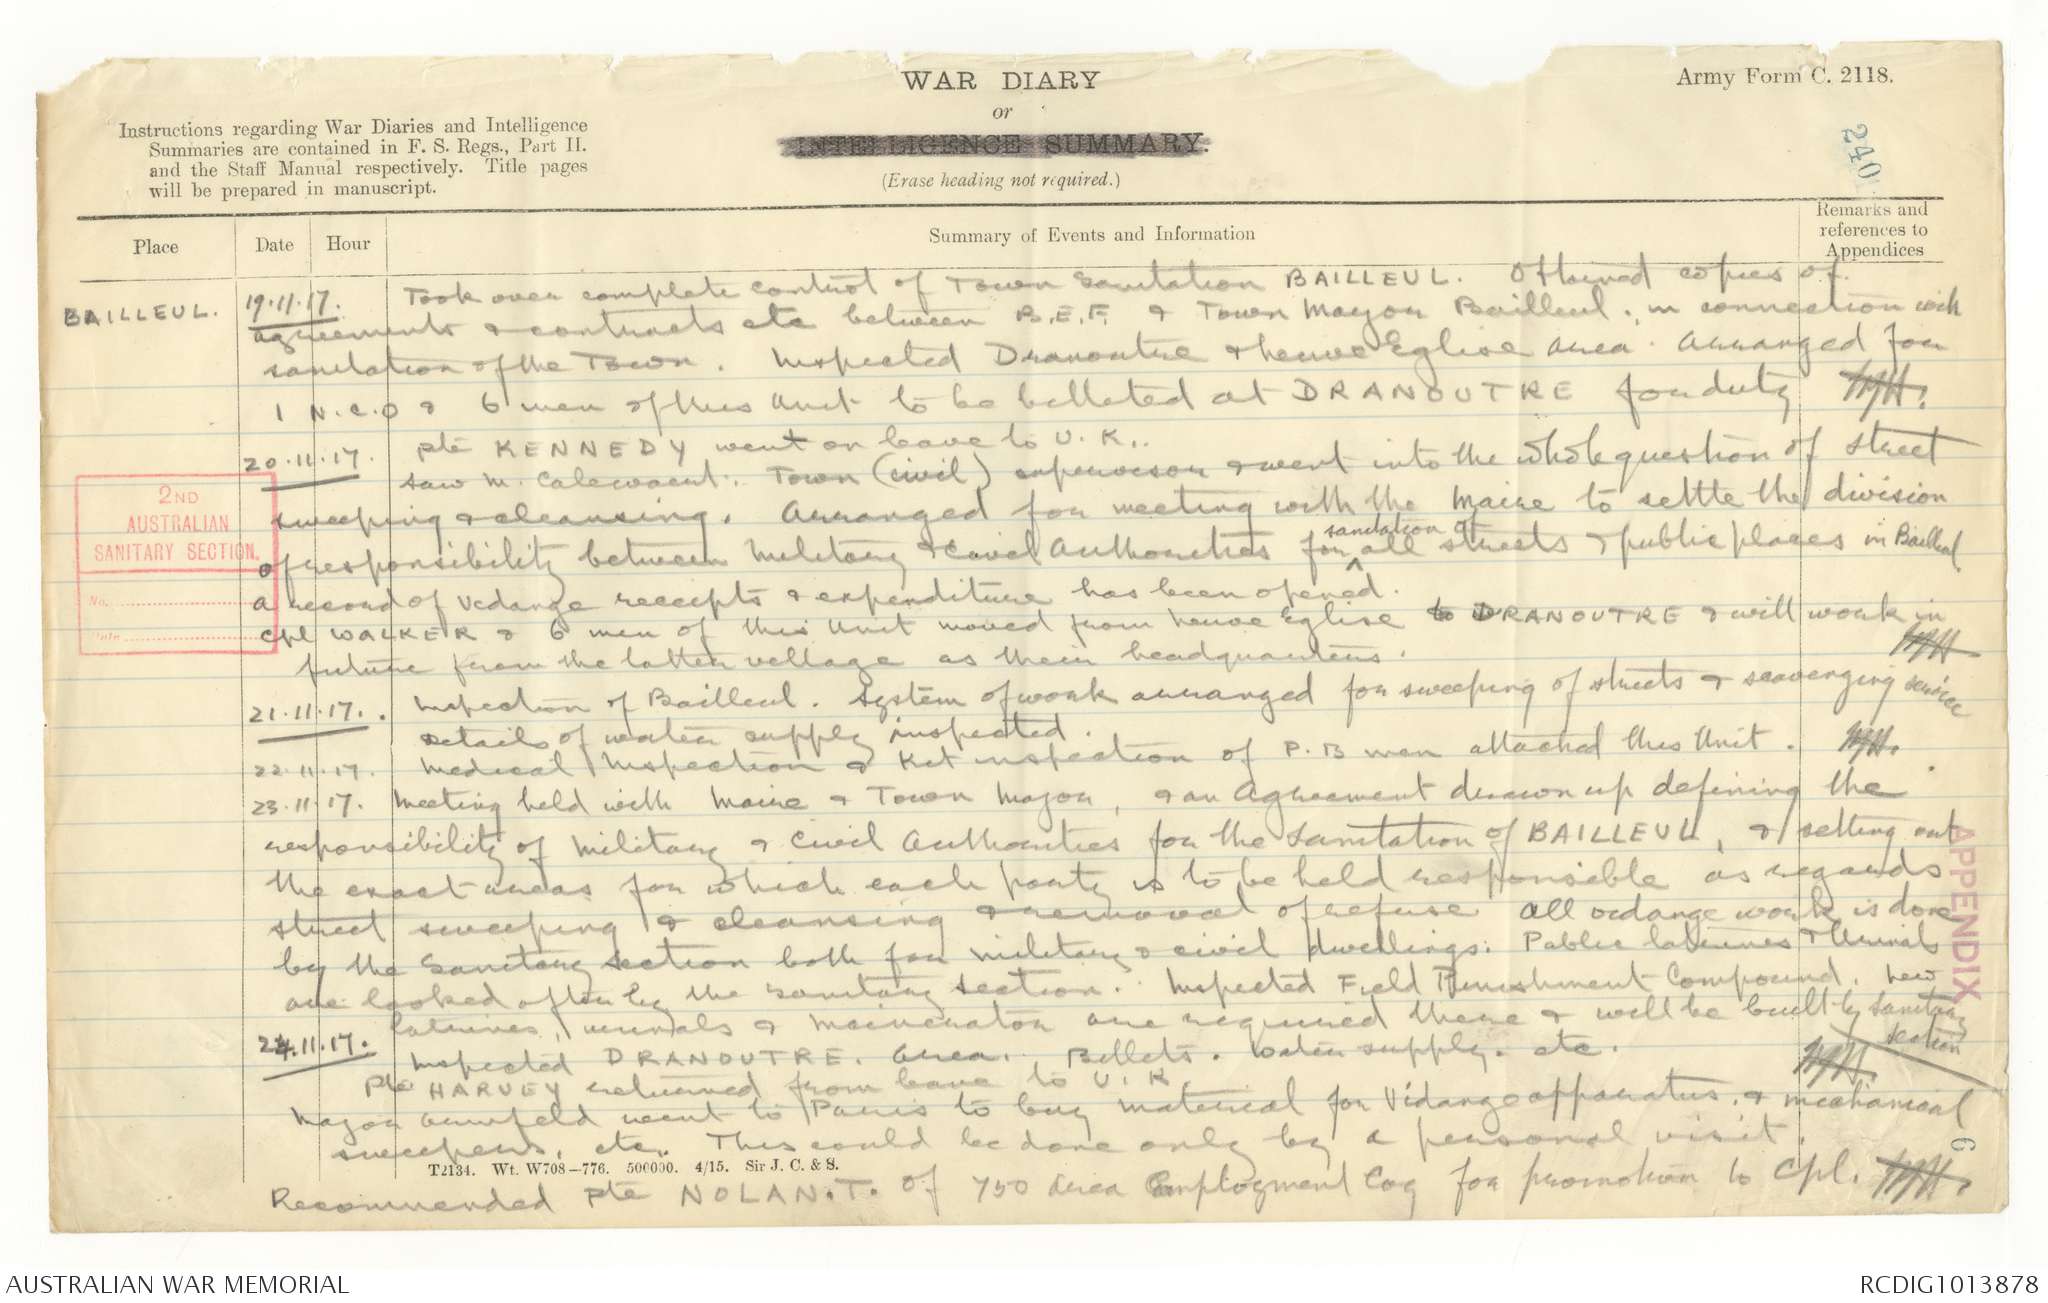 WAR DIARY
or
INTELLIGENCE SUMMARY.
(Erase heading not required.)
Army Form C. 2118.
240
Instructions regarding War Diaries and Intelligence
Summaries are contained in F. S. Regs., Part II.
and the Staff Manual respectively. Title pages
will be prepared in manuscript.
Place Date Hour Summary of Events and Information Remarks and
references to
Appendices
BAILLEUL. 19.11.17. Took over complete control of Town Sanitation BAILLEUL. Obtained copies of
agreements & contracts etc between B.E.F. & Town Mayor Bailleul, in connection with
sanitation of the Town. Inspected Dranoutre & Neuve Eglise area. Arranged for
1 N.C.O & 6 men of this Unit to be billeted at DRANOUTRE for duty
Pte KENNEDY went on leave to U.K..
20.11.17. Saw M. Calewaert. Town (civil) supervisor & went into the whole question of street
sweeping & cleansing. Arranged for meeting with the Maire to settle the division
of responsibility between Military & Civil Authorities for sanitation of all streets & public places in Bailleul
a record of Vidange receipts & expenditure has been opened.
Cpl WALKER & 6 men of this Unit moved from Neuve Eglise to DRANOUTRE & will work in
future from the latter village as their headquarters.
21.11.17. Inspection of Bailleul. System of work arranged for sweeping of streets & scavenging service
Details of water supply inspected.
22.11.17. Medical Inspection & Kit inspection of P.B men attached this Unit.
23.11.17. Meeting held with Maire & Town Major, & an Agreement drawn up defining the
responsibility of Military & Civil Authorities for the Sanitation of BAILLEUL, & setting out
the exact areas for which each party is to be held responsible as regards
street sweeping & cleansing & removal of refuse All vidange work is done
by the Sanitary Section both for military & civil dwellings. Public latrines & Urinals
are looked after by the Sanitary Section. Inspected Field Punishment Compound. New
latrines, urinals & incinerator are required there & will be built by Sanitary
Section
24.11.17. Inspected DRANOUTRE. Area. Billets. Water supply. etc.
Pte HARVEY returned from leave to U.K
Major went to Paris to buy material for Vidange apparatus, & mechanical
sweepers, etc. This could be done only by a personal visit.
T2134. Wt. W708—776. 500000. 4/15. Sir J. C. & S.
Recommended Pte NOLAN.T. of 750 Area Employment Coy for promotion to Cpl.
2ND
AUSTRALIAN
SANITARY SECTION.
No.
Date
APPENDIX
6
AUSTRALIAN WAR MEMORIAL
RCDIG1013878